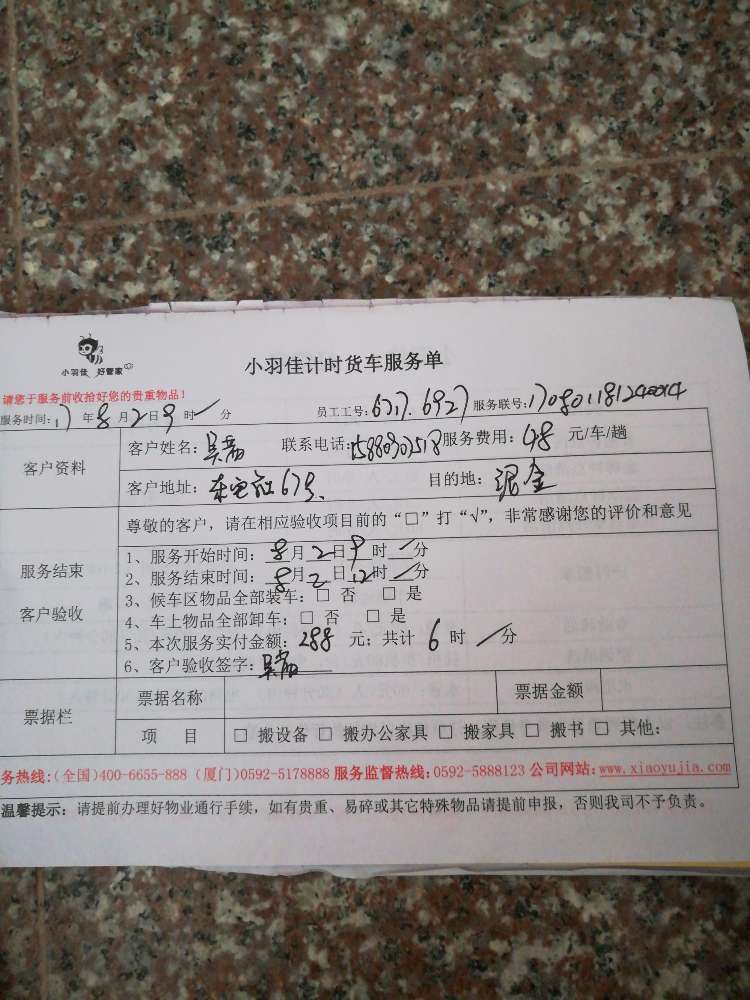 小羽佳 好管家
小羽佳计时货车服务单
请您于服务前收拾好您的贵重物品!
服务时间:17年8月2日9时/分 员工工号:6717.6927 服务联号:170801181240014
客户资料
客户姓名: 联系电话:15880302518 服务费用:48 元/车/趟
客户地址:东宅社67号 目的地:
服务结束
客户验收
尊敬的客户,请在相应验收项目前的“□”打“√”,非常感谢您的评价和意见
1、服务开始时间:8月2日9时/分
2、服务结束时间:8月2日12时/分
3、候车区物品全部装车:□ 否 □ 是
4、车上物品全部卸车:□ 否 □ 是
5、本次服务实付金额:288 元;共计 6 时/分
6、客户验收签字:
票据栏
票据名称 票据金额
项 目 □ 搬设备 □ 搬办公家具 □ 搬家具 □ 搬书 □ 其他:
务热线:(全国)400-6655-888 (厦门)0592-5178888 服务监督热线:0592-5888123 公司网站:www.xiaoyujia.com
温馨提示:请提前办理好物业通行手续,如有贵重、易碎或其它特殊物品请提前申报,否则我司不予负责。